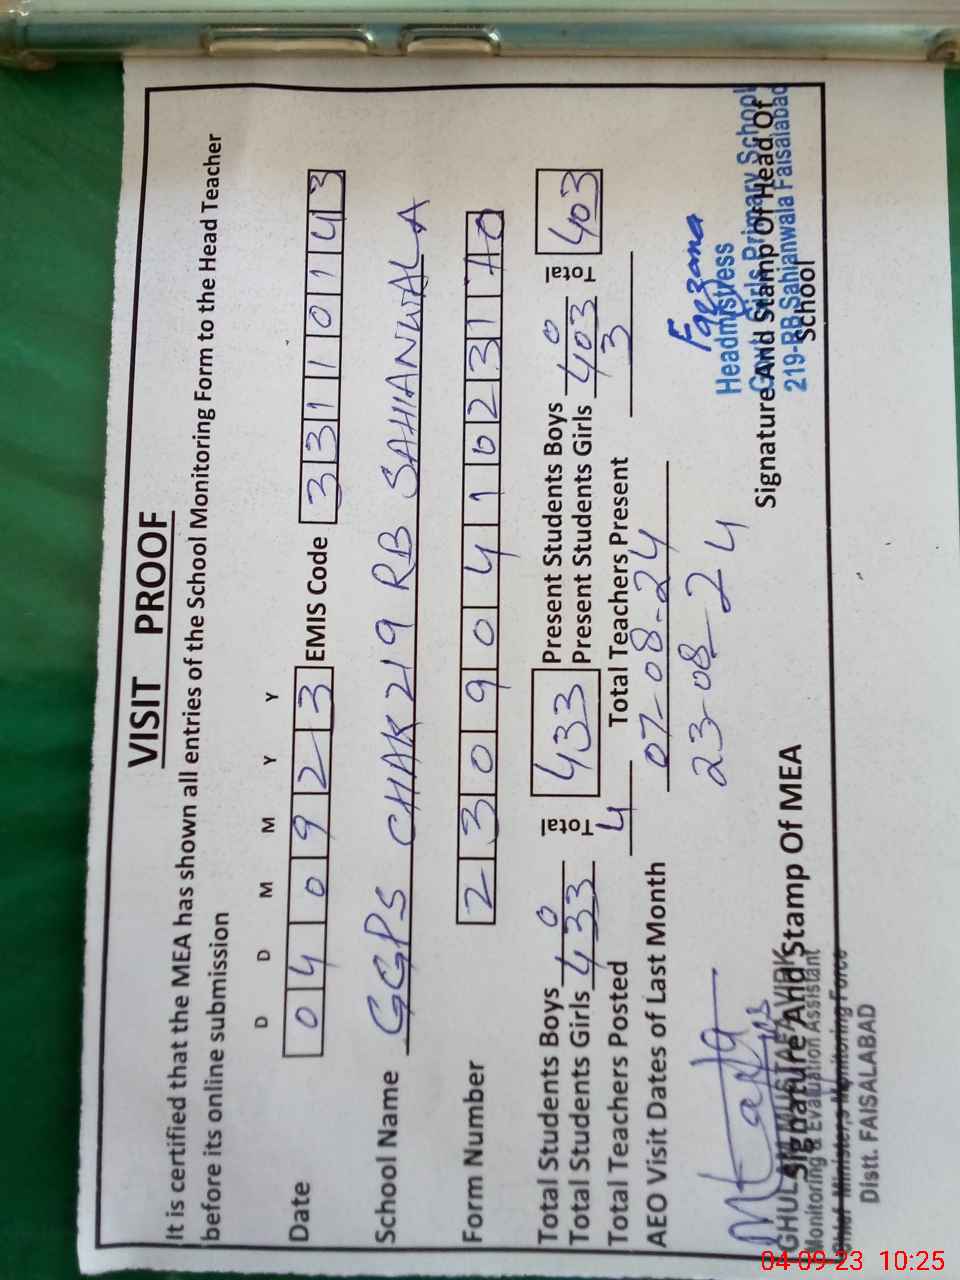 VISIT PROOF
It is certified that the MEA has shown all entries of the School Monitoring Form to the Head Teacher
before its online submission
D D M M Y Y
Date 040923 EMIS Code 33110143
School Name GGPS CHAK 219 RB SAHIANWALA
Form Number 230904110231A0
Total Students Boys 0 Total 433 Present Students Boys 0 Total 403
Total Students Girls 433 Present Students Girls 403
Total Teachers Posted 4 Total Teachers Present 3
AEO Visit Dates of Last Month 07-08-24
23-08-24
Headmistress
Govt. Girls Primary School
219-RB Sahianwala Faisalabad
Signature And Stamp Of MEA Signature And Stamp Of Head Of
School
GHULAM MUSTAFA VIRK
Monitoring & Evaluation Assistant
Chief Minister,s Monitoring Force
Distt. FAISALABAD
04-09-23 10:25